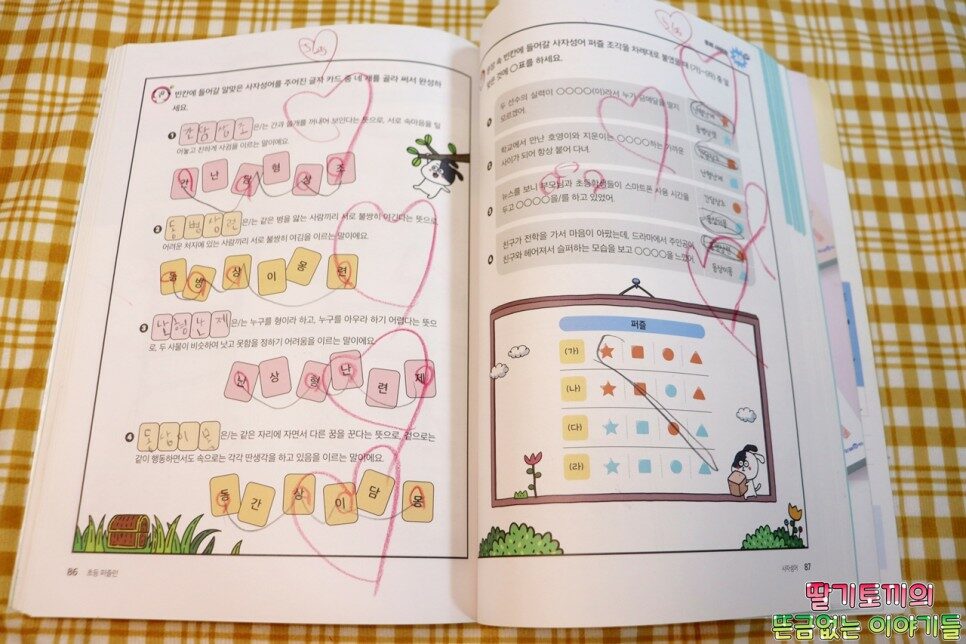 5/25
빈칸에 들어갈 알맞은 사자성어를 주어진 글자 카드 중 네 개를 골라 써서 완성하
세요.
1 간담상조 은/는 간과 쓸개를 꺼내어 보인다는 뜻으로, 서로 속마음을 털
어놓고 친하게 사귐을 이르는 말이에요.
간 난 담 형 상 조
2 동병상련 은/는 같은 병을 앓는 사람끼리 서로 불쌍히 여긴다는 뜻으로,
어려운 처지에 있는 사람끼리 서로 불쌍히 여김을 이르는 말이에요.
동 병 상 이 몽 련
3 난형난제 은/는 누구를 형이라 하고, 누구를 아우라 하기 어렵다는 뜻으
로, 두 사물이 비슷하여 낫고 못함을 정하기 어려움을 이르는 말이에요.
난 상 형 난 련 제
4 동상이몽 은/는 같은 자리에 자면서 다른 꿈을 꾼다는 뜻으로, 겉으로는
같이 행동하면서도 속으로는 각각 딴생각을 하고 있음을 이르는 말이에요.
동 간 상 이 담 몽
86 초등 퍼즐런
5/25
속 빈칸에 들어갈 사자성어 퍼즐 조각을 차례대로 붙였을 때 (가)~(라) 중 알
맞은 것에 ○표를 하세요.
두 선수의 실력이 ○○○○(이)라서 누가 금메달을 딸지
모르겠어.
학교에서 만난 호영이와 지운이는 ○○○○하는 가까운
사이가 되어 항상 붙어 다녀.
뉴스를 보니 부모님과 초등학생들이 스마트폰 사용 시간을
두고 ○○○○을/를 하고 있었어.
친구가 전학을 가서 마음이 아팠는데, 드라마에서 주인공이
친구와 헤어져서 슬퍼하는 모습을 보고 ○○○○을 느꼈어.
난형난제
동병상련
간담상조
난형난제
간담상조
동상이몽
동상이몽
퍼즐
(가)
(나)
(다)
(라)
사자성어 87
딸기토끼의
뜬금없는 이야기들